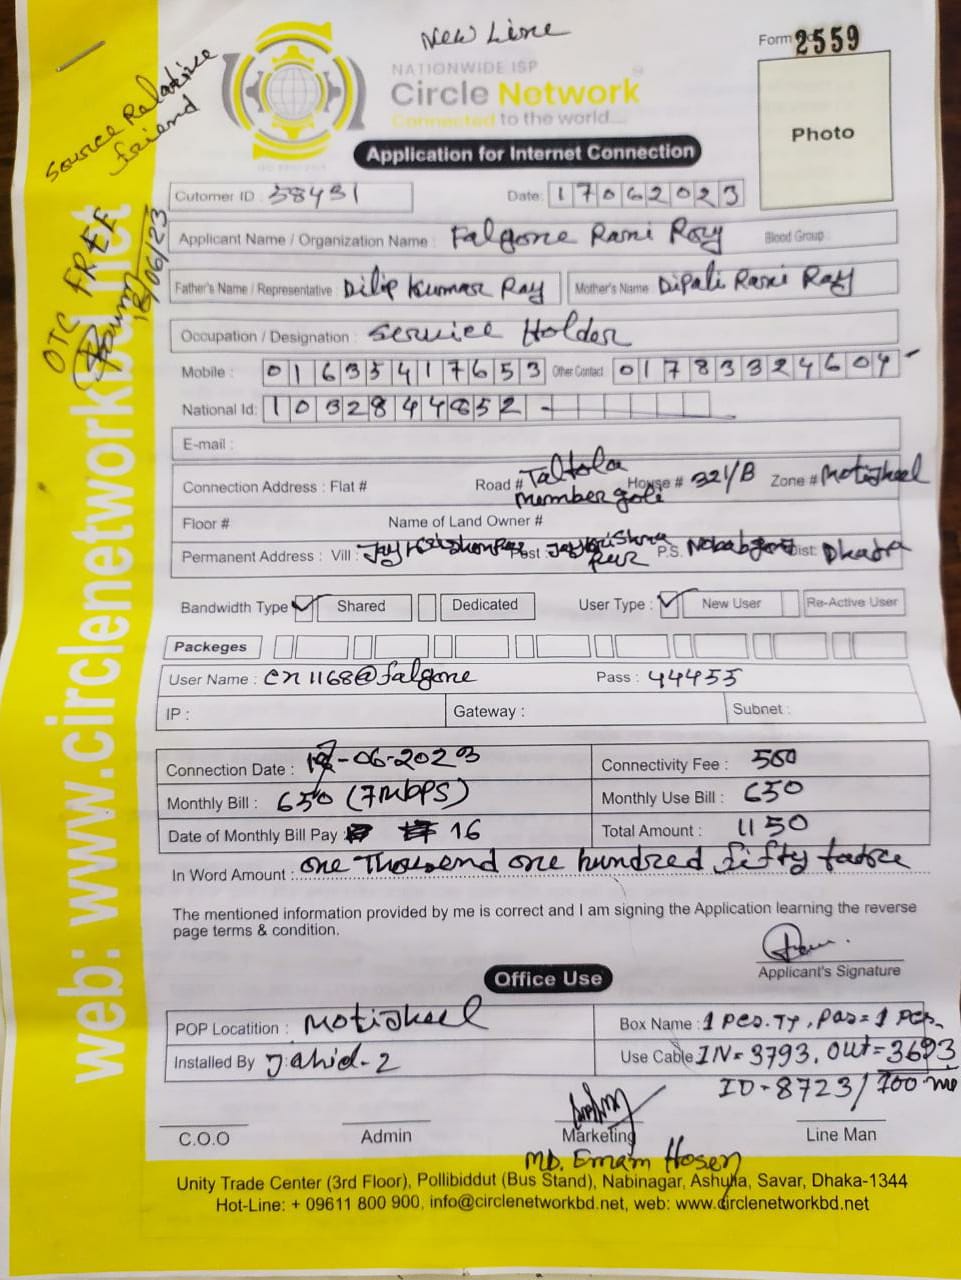 New Line
Form 2559
Source Relative
friend
NATIONWIDE ISP
Circle Network
Connected to the world....
Photo
Application for Internet Connection
Cutomer ID : 38431
Date: 17062023
OTC FREE
18/06/23
Applicant Name / Organization Name : Falgone Rani Roy
Blood Group :
Father's Name / Representative : Dilip Kumar Ray
Mother's Name : Dipali Rani Ray
Occupation / Designation : Service Holder
Mobile : 01635417653 Other Contact 01783324604
National Id: 1032844852
E-mail :
Connection Address : Flat # Road # Taltola House # 321/B Zone # Motijheel
member goli
Floor # Name of Land Owner #
Permanent Address : Vill : Post P.S. Dist:
Bandwidth Type Shared Dedicated User Type : New User Re-Active User
Packeges
User Name : cn1168@falgone Pass : 44455
IP : Gateway : Subnet :
Connection Date : -06-2023 Connectivity Fee : 500
Monthly Bill : 650 (7mbps) Monthly Use Bill : 650
Date of Monthly Bill Pay : 16 Total Amount : 1150
In Word Amount : one Thousend one hundred fifty
The mentioned information provided by me is correct and I am signing the Application learning the reverse
page terms & condition.
Applicant's Signature
Office Use
POP Locatition : Motijheel Box Name : 1 pcs. TJ, Pas = 1 pcs.
Installed By Jahid-2 Use Cable IN = 3793, OUT = 3693
ID-8723/100 m
C.O.O Admin Marketing Line Man
MD. Emam Hosen
Unity Trade Center (3rd Floor), Pollibiddut (Bus Stand), Nabinagar, Ashulia, Savar, Dhaka-1344
Hot-Line: + 09611 800 900, info@circlenetworkbd.net, web: www.circlenetworkbd.net
web: www.circlenetworkbd.net